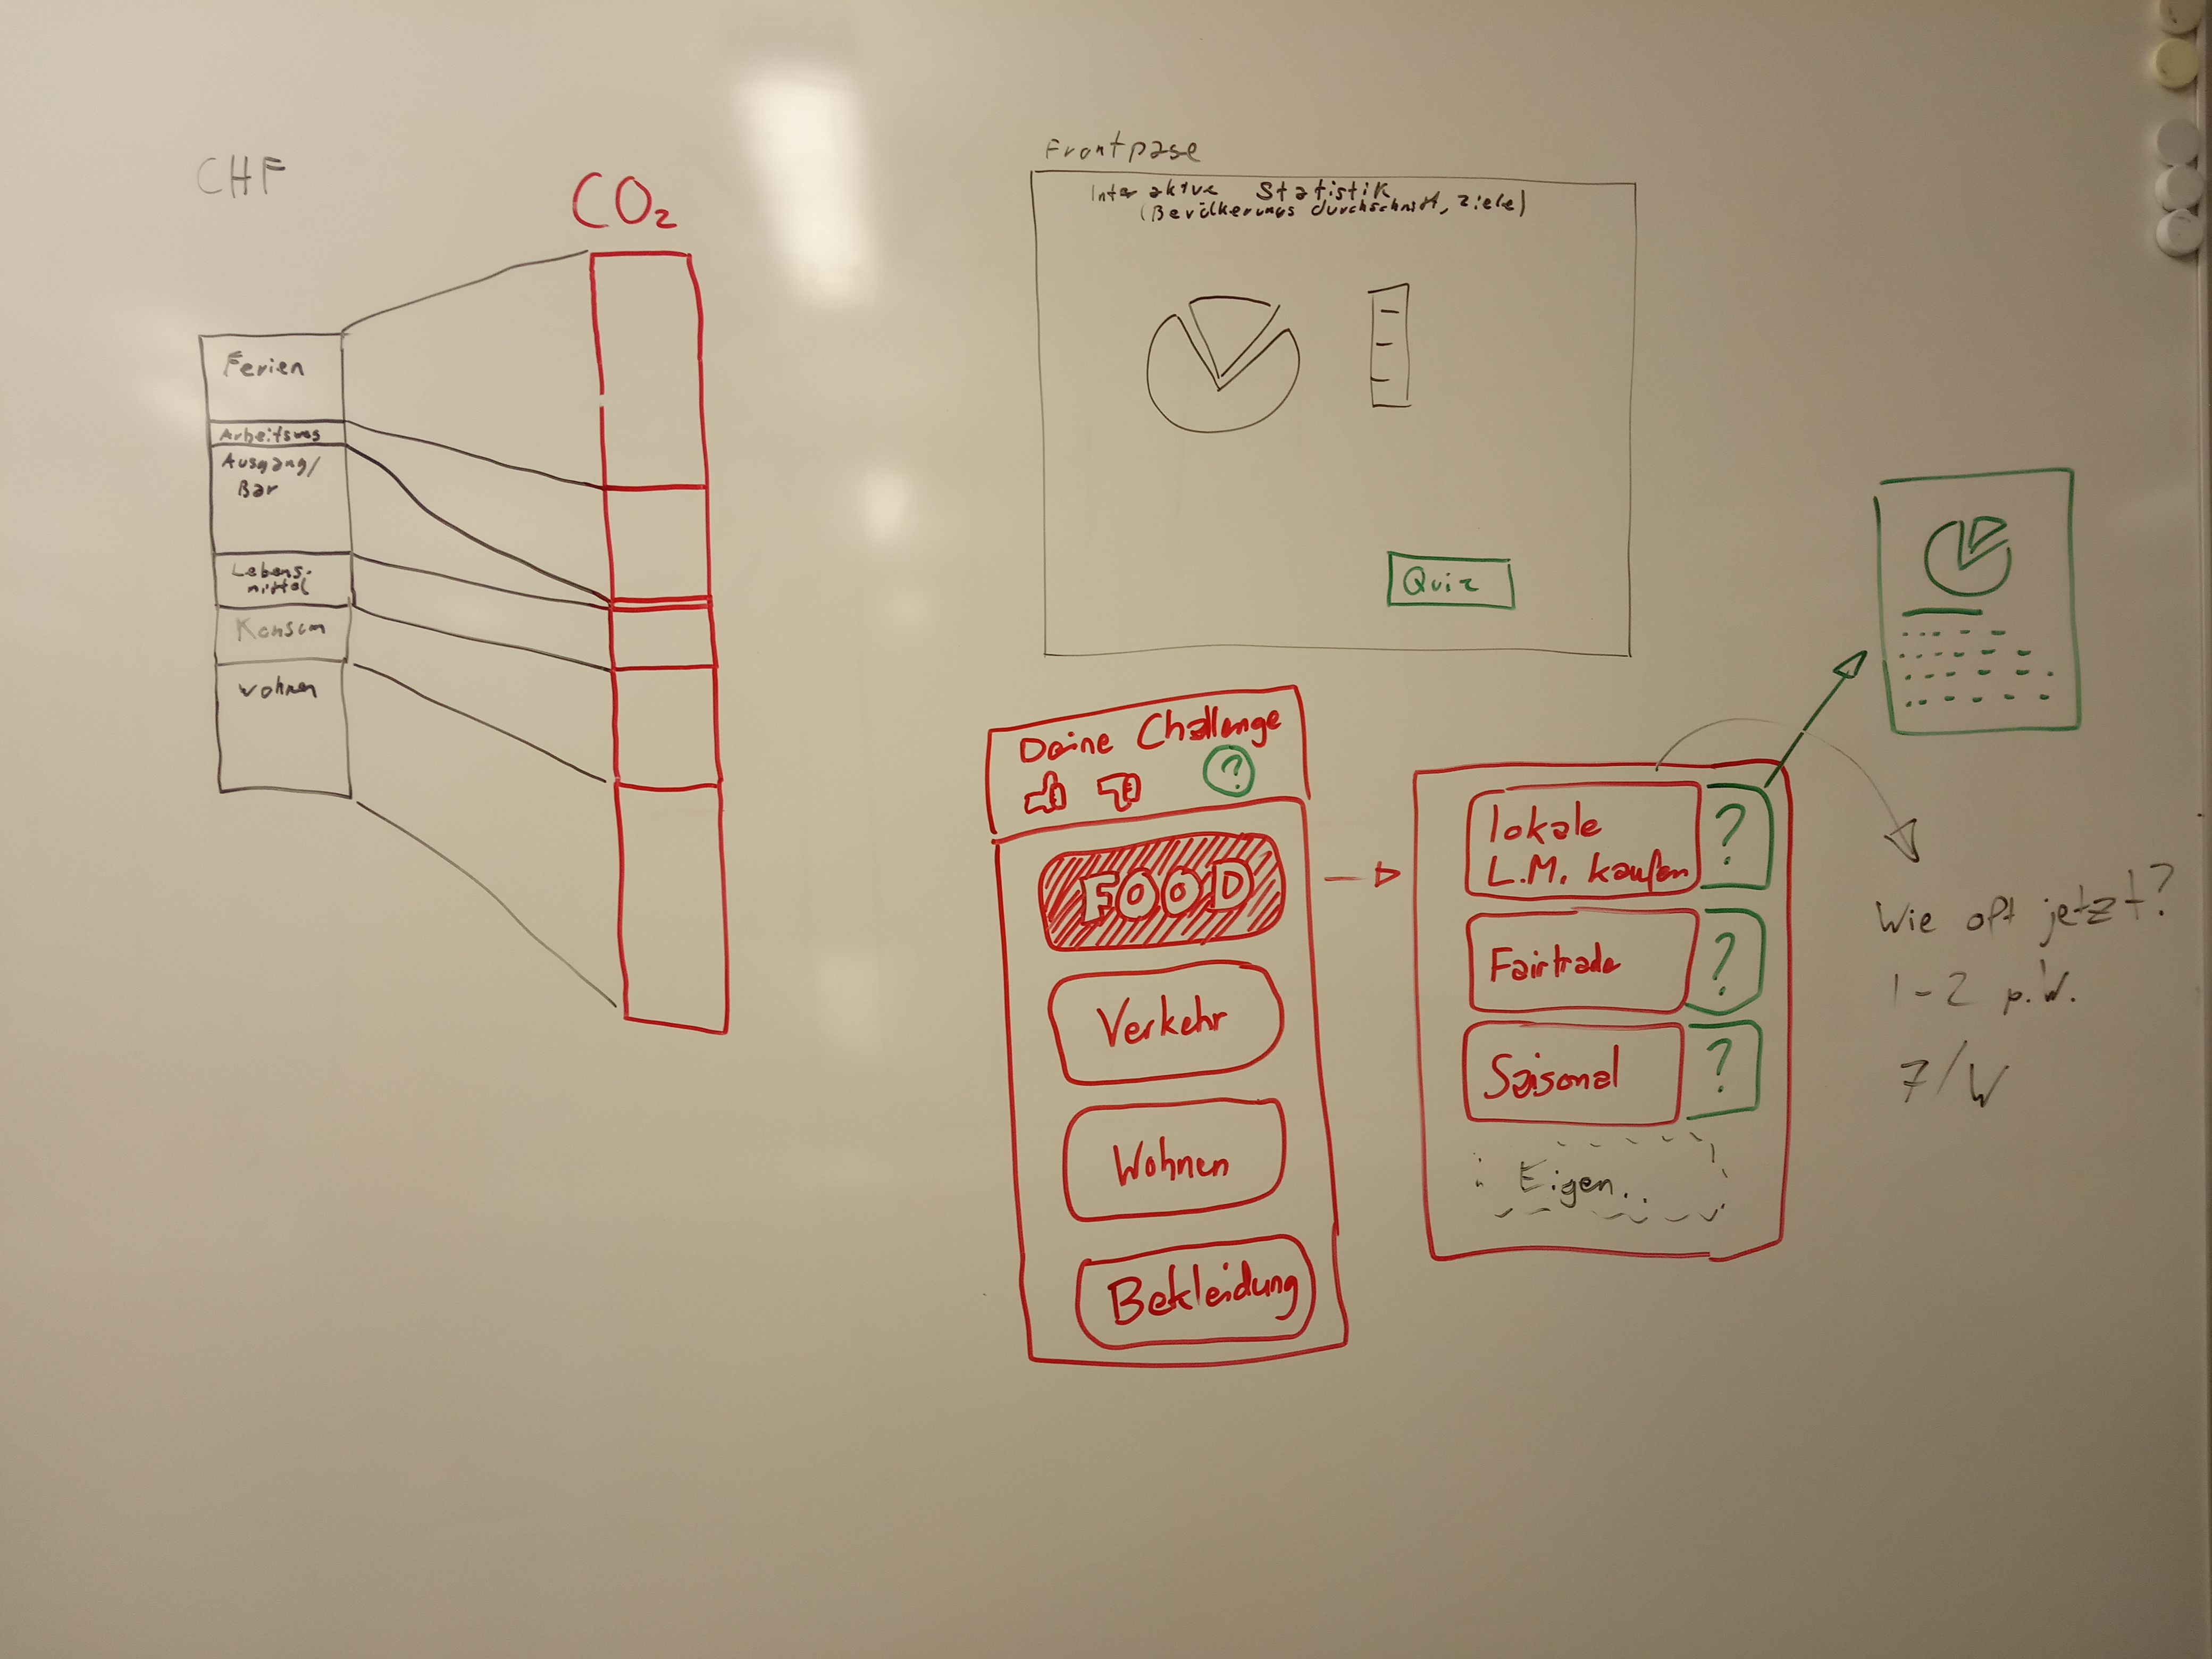 CHF
CO2
Ferien
Arbeitsweg
Ausgang/
Bar
Lebens-
mittel
Konsum
wohnen
Frontpage
Interaktive Statistik
(Bevölkerungs durchschnitt, ziele)
Quiz
Deine Challenge
?
FOOD
Verkehr
Wohnen
Bekleidung
lokale
L.M. kaufen
?
Fairtrade
?
Saisonal
?
Eigen..
Wie oft jetzt?
1-2 p.W.
7/W